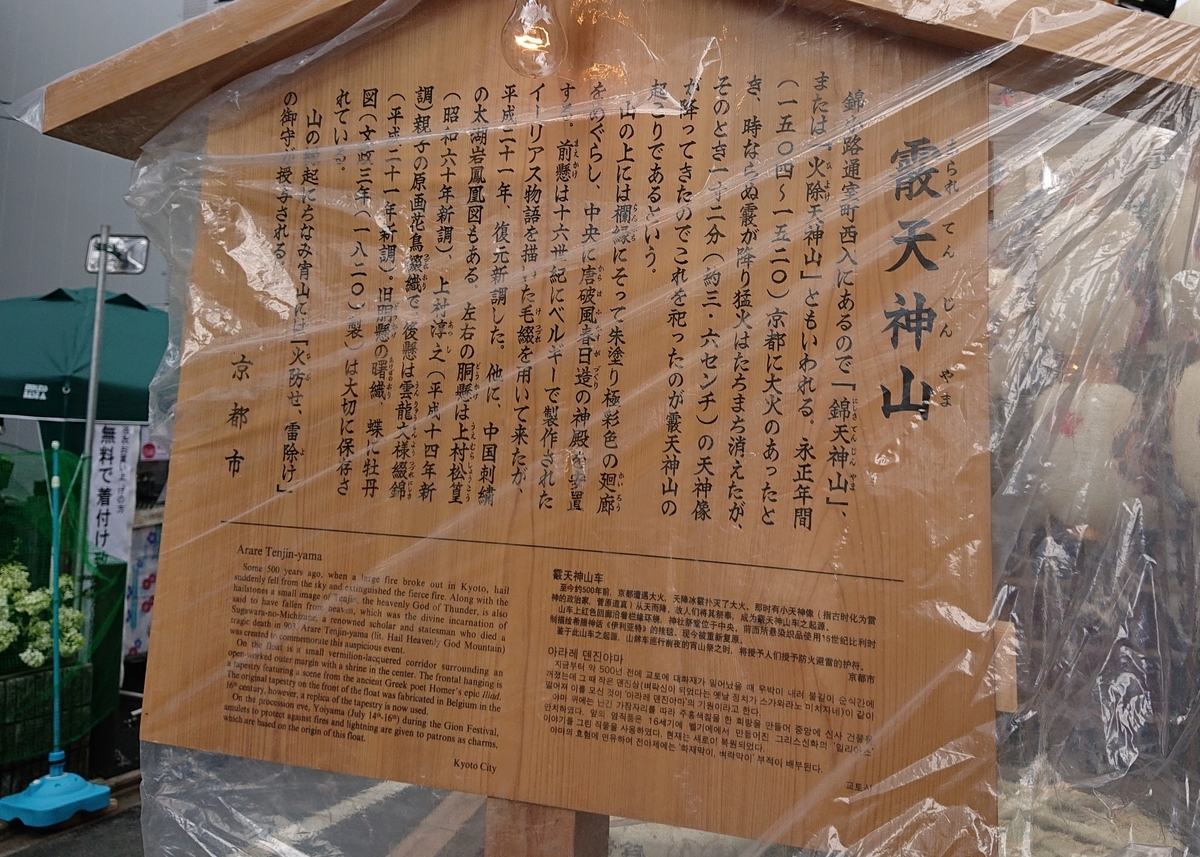 霰天神山
あられ てん じん やま
錦小路通室町西入にあるので「錦天神山」、
または「火除天神山」ともいわれる。永正年間
(一五〇四〜一五二〇)京都に大火のあったと
き、時ならぬ霰が降り猛火はたちまち消えたが、
そのとき一寸二分(約三・六センチ)の天神像
が降ってきたのでこれを祀ったのが霰天神山の
起こりであるという。
山の上には欄縁にそって朱塗り極彩色の廻廊
をめぐらし、中央に唐破風春日造の神殿を安置
する。前懸は十六世紀にベルギーで製作された
イーリアス物語を描いた毛綴を用いて来たが、
平成二十一年、復元新調した。他に、中国刺繍
の太湖岩鳳凰図もある。左右の胴懸は上村松篁
(昭和六十年新調)、上村淳之(平成十四年新
調)親子の原画花鳥綴織で、後懸は雲龍文様綴錦
(平成二十一年新調)。旧胴懸の曙織、蝶に牡丹
図(文政三年(一八二〇)製)は大切に保存さ
れている。
山の縁起にちなみ宵山には「火防せ、雷除け」
の御守が授与される。
京都市
Arare Tenjin-yama
Some 500 years ago, when a large fire broke out in Kyoto, hail
suddenly fell from the sky and extinguished the fierce fire. Along with the
hailstones a small image of Tenjin, the heavenly God of Thunder, is also
said to have fallen from heaven, which was the divine incarnation of
Sugawara-no-Michizane, a renowned scholar and statesman who died a
tragic death in 903. Arare Tenjin-yama (lit. Hail Heaven// God Mountain)
was created to commemorate this auspicious event.
On the float is a small vermilion-lacquered corridor surrounding an
open-worked outer margin with a shrine in the center. The frontal hanging is
a tapestry featuring a scene from the ancient Greek poet Homer's epic Iliad.
The original tapestry on the front of the float was fabricated in Belgium in the
16th century, however, a replica of the tapestry is now used.
On the procession eve, Yoiyama (July 14th-16th) during the Gion Festival,
amulets to protect against fires and lightning are given to patrons as charms,
which are based on the origin of this float.
Kyoto City
霰天神山车
至今约500年前,京都遭遇大火,天降冰霰扑灭了大火,那时有小天神像(指古时化为雷
神的政治家,菅原道真)从天而降,故人们将其祭奉,成为霰天神山车之起源。
山车上红色回廊沿着栏缘环绕,神社祭堂位于中央,前面所悬染织品使用16世纪比利时
制描绘希腊神话《伊利亚特》的挂毯,现今被重新复原。
鉴于此山车之起源,山鉾车巡行前夜的宵山祭之时,将授予人们授予防火避雷的护符。
京都市
아라레 덴진야마
지금부터 약 500년 전에 교토에 대화재가 일어났을 때 우박이 내려 불길이 순식간에
꺼졌는데 그 때 작은 덴진상(벼락신이 되었다는 옛날 정치가 스가와라노 미치자네)이 같이
떨어져 이를 모신 것이 '아라레 덴진야마'의 기원이라고 한다.
야마 위에는 난간 가장자리를 따라 주홍색칠을 한 회랑을 만들어 중앙에 신사 건물을
안치하였다. 앞의 염직품은 16세기에 벨기에에서 만들어진 그리스신화의 '일리아스'
이야기를 그린 직물을 사용하였다. 현재는 새로이 복원되었다.
야마의 효험에 연유하여 전야제에는 '화재막이, 벼락막이' 부적이 배부된다.
교토시
無料で着付け